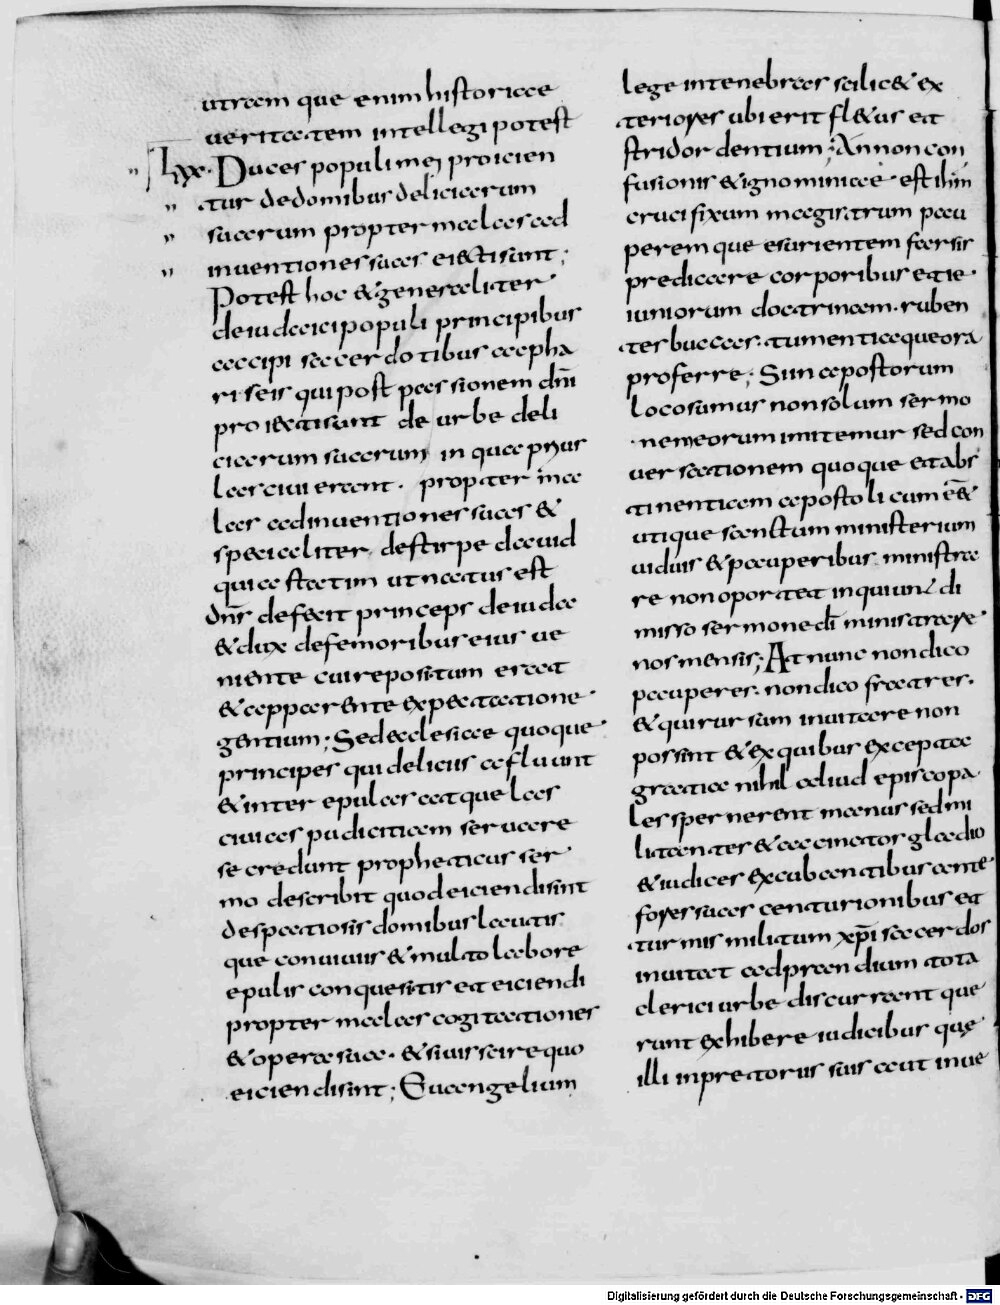 utram que enim historiae
ueritatem intellegi potest
Lxx. Duces populi mei proicien
tur de domibus deliciarum
suarum propter malas ad
inuentiones suas eiecti sunt;
Potest hoc & generaliter
de iudaici populi principibus
accipi sacerdotibus ac pha
riseis qui post passionem dni
proiecti sunt de urbe deli
ciarum suarum in qua prius
lasciuierant. propter ma
las adinuentiones suas &
specialiter de stirpe dauid
qui a statim ut natus est
dns defecit princeps de iuda
& dux de femoribus eius ue
niente cui repositum erat
& apparente expectatione
gentium; Sed ecclesiae quoque
principes qui deliciis affluunt
& inter epulas atque las
ciuias pudicitiam seruare
se credunt propheticus ser
mo describit quod eiciendi sint
de spatiosis domibus lautis
que conuiuiis & multo labore
epulis conquesitis et eiciendi
propter malas cogitationes
& opera sua. & si uis scire quo
eiciendi sint; Euangelium
lege in tenebras scilic& ex
teriores ubi erit fl&us et
stridor dentium; An non con
fusionis & ignominiae est ihm
crucifixum magistrum pau
perem que esurientem farsis
predicare corporibus et ie
iuniorum doctrinam. ruben
tes buccas. tumentiaque ora
proferre; Si in apostorum
loco sumus non solum sermo
nem eorum imitemur sed con
uersationem quoque et abs
tinentiam apostoli cum e&
utique sanctum ministerium
uiduis & pauperibus ministra
re non oportet inquiunt di
misso sermone di ministrare
nos mensis; At nunc non dico
pauperes. non dico fratres.
& qui rursum inuitare non
possint & ex quibus excepta
gratia nihil aliud episcopa
les spernerent manus sed mi
litantes & accinctos gladio
& iudices excubantibus ante
fores suas centurionibus et
turmis militum xpi sacerdos
inuitat ad prandium tota
clerici urbe discurrant que
runt exhibere iudicibus quę
illi in pretoriis suis aut inue